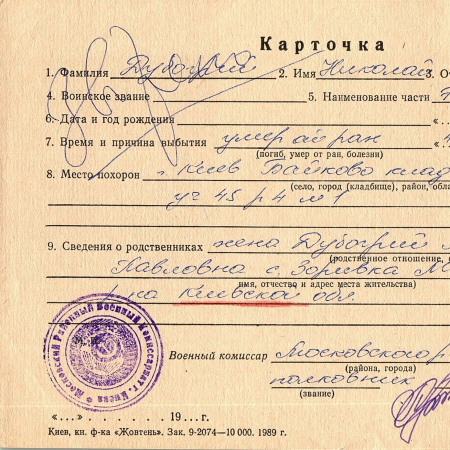 Карточка
1. Фамилия Дубогрий 2. Имя Николай 3. О
4. Воинское звание 5. Наименование части
6. Дата и год рождения «..
7. Время и причина выбытия умер от ран
(погиб, умер от ран, болезни)
8. Место похорон г. Киев Байково клад
(село, город (кладбище), район, обла
уч 45 р 4 м 1
9. Сведения о родственниках жена Дубогрий
(родственное отношение,
Павловна с. Зоривка
имя, отчество и адрес места жительства)
р-на Киевской обл.
Московский Районный Военный Комиссариат г. Киева
М.
Военный комиссар Московского р
(района, города)
полковник
(звание)
«...» . . . . . . 19... г.
Киев, кн. ф-ка «Жовтень». Зак. 9-2074—10 000. 1989 г.